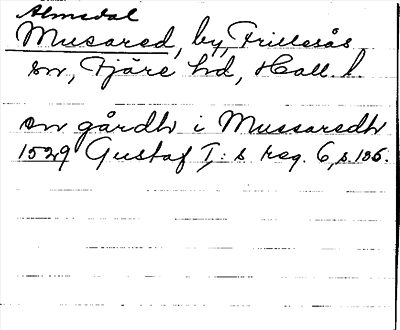 Almedal
Musared, by, Frillesås
sn, Fjäre hd, Hall. l.
en gårdh i Mussarsdh
1529 Gustaf I:s reg. 6, s. 136.